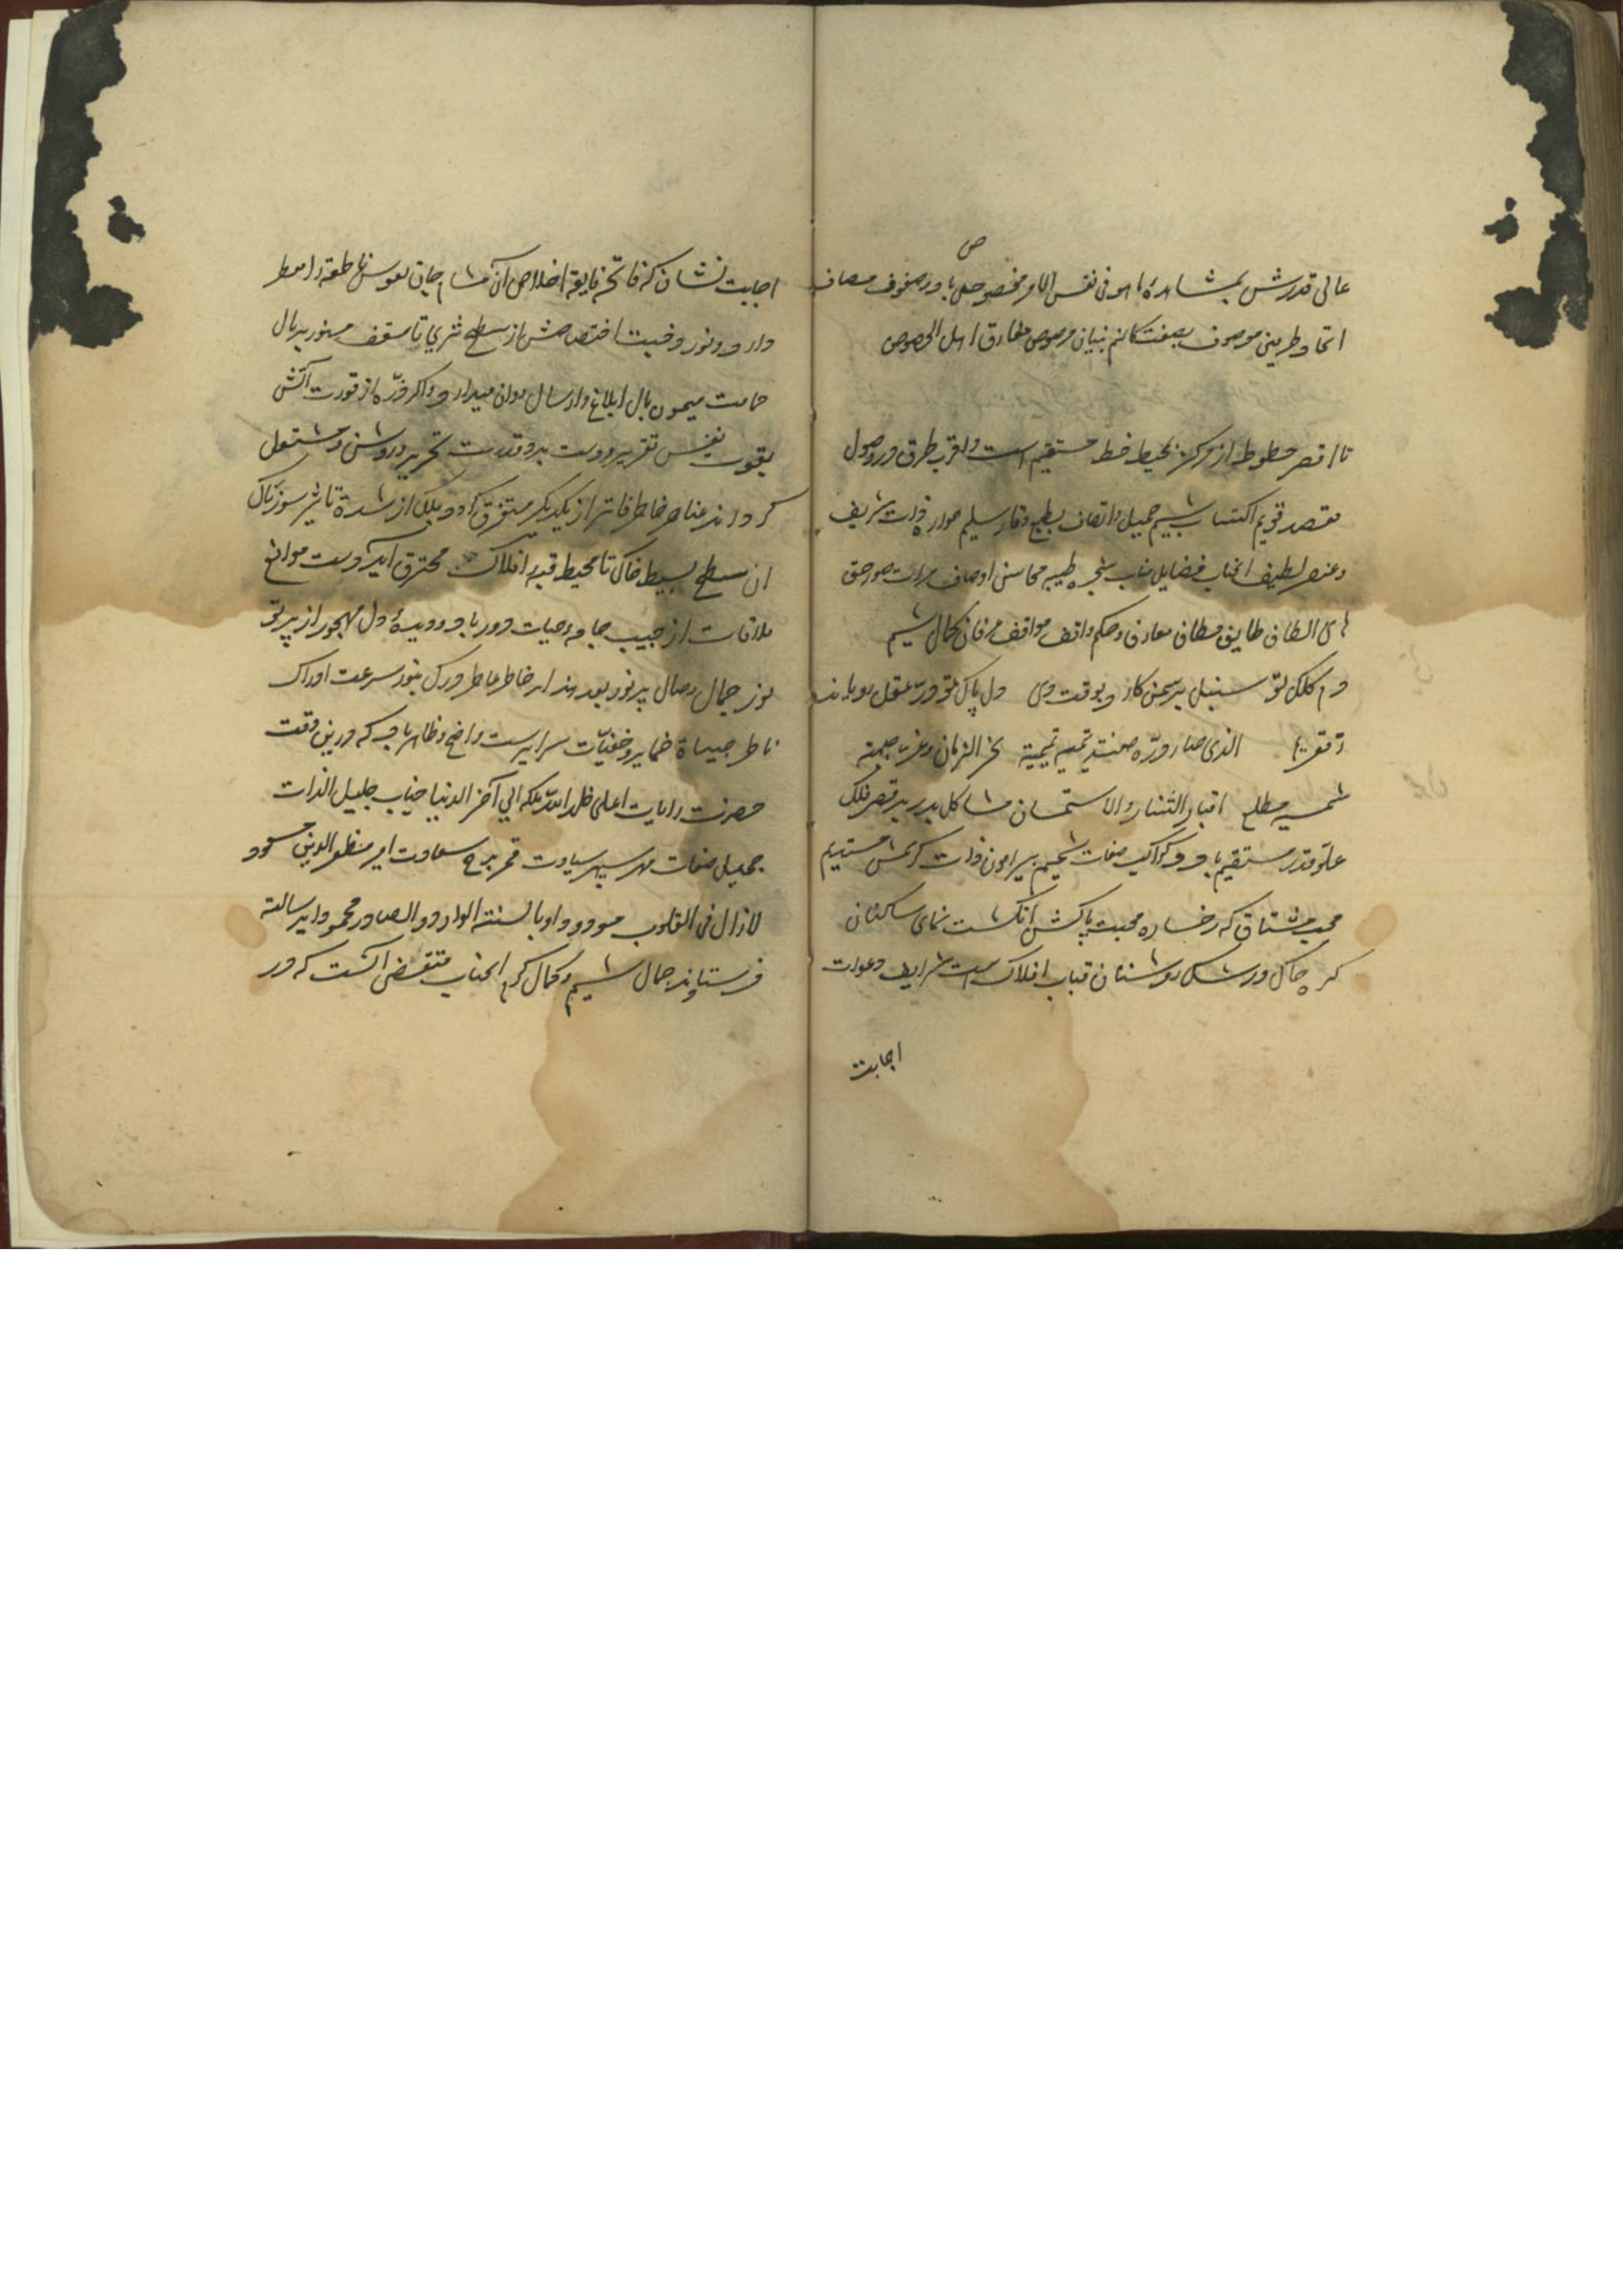 عالی قدرش بمشاهدهٔ ما هو فی نفس الامر مخصوص باد و در صفوف مصاف
ص
اتحاد طرینی موصوف بصفت کانهم بنیان مرصوص مفارق اهل الخصوص
تا اقصر خطوط از مرکز بمحیط خط مستقیم است و اقرب طرق در وصول
مقصد قویم اکتساب شیم جمیل و اتصاف بطبع وقاد و سلیم موارد ذات شریف
و عنصر لطیف انجناب فضایل مناب شجره طیبه محاسن اوصاف مرآت صور حق
الطاف طایف مطاف معارف و حکم واقف مواقف عرفان کمال شیم
دم کلک تو سنبل بر سمن کارد بوقت وی دل پاک تو در عقل
الذی صار درّه تمیمة نحر الزمان و غرة جبهته
شمسیه مطلع اقبار الثنا و الاستحسان مشاکل بدر بر قصر فلک
علوّ قدر مستقیم باد و کواکب صفات شیم پیرامون ذات کریمش مستدیم
محب مشتاق که رخساره محبت پاکش انگشت نمای ساکنان
کره خاک و رشک روشنان قباب افلاک است شرایف دعوات
اجابت
اجابت نشان که فاتحه فایحهٔ اخلاص آن مشام جان نفوس ناطقه را معطر
دارد و نور وخیت اختصاصش از سطح ثری تا سقف منور ببال
حمامت میمون بال ابلاغ و ارسال روان میدارد و اگر ذرّه از قدرت آتش
بقوت نفس تقریر و دست بر و قدرت تحریر روشن و مشتعل
کرداند عناصر خاطر فاتر از یکدیگر متفرق گردد بلکه از شدة تاثیر سوزناک
آن سطح بسیط خاک تا محیط قبه افلاک محترق آید دست موانع
ملاقات از جیب جامه حیات دور باد و دیدهٔ دل مهجور از پرتو
نور جمال وصال پر نور بعد هذا بر خاطر عاطر و درک بنور سرعت ادراک
ناظر ضمایر و خفیّات سرایر است واضح و ظاهر باد که درین وقت
حضرت رایات اعلی خلد الله ملکه الی آخر الدنیا جناب جلیل الذات
جمیل صفات مهر سپهر سیادت قمر برج سعادت امیر مظفر الدین مسعود
لازال فی القلوب مودودا و بالسنة الوارد و الصادر محمودا برسالت
فرستادند جمال شیم و کمال کرم انجناب مقتضی آنست که در